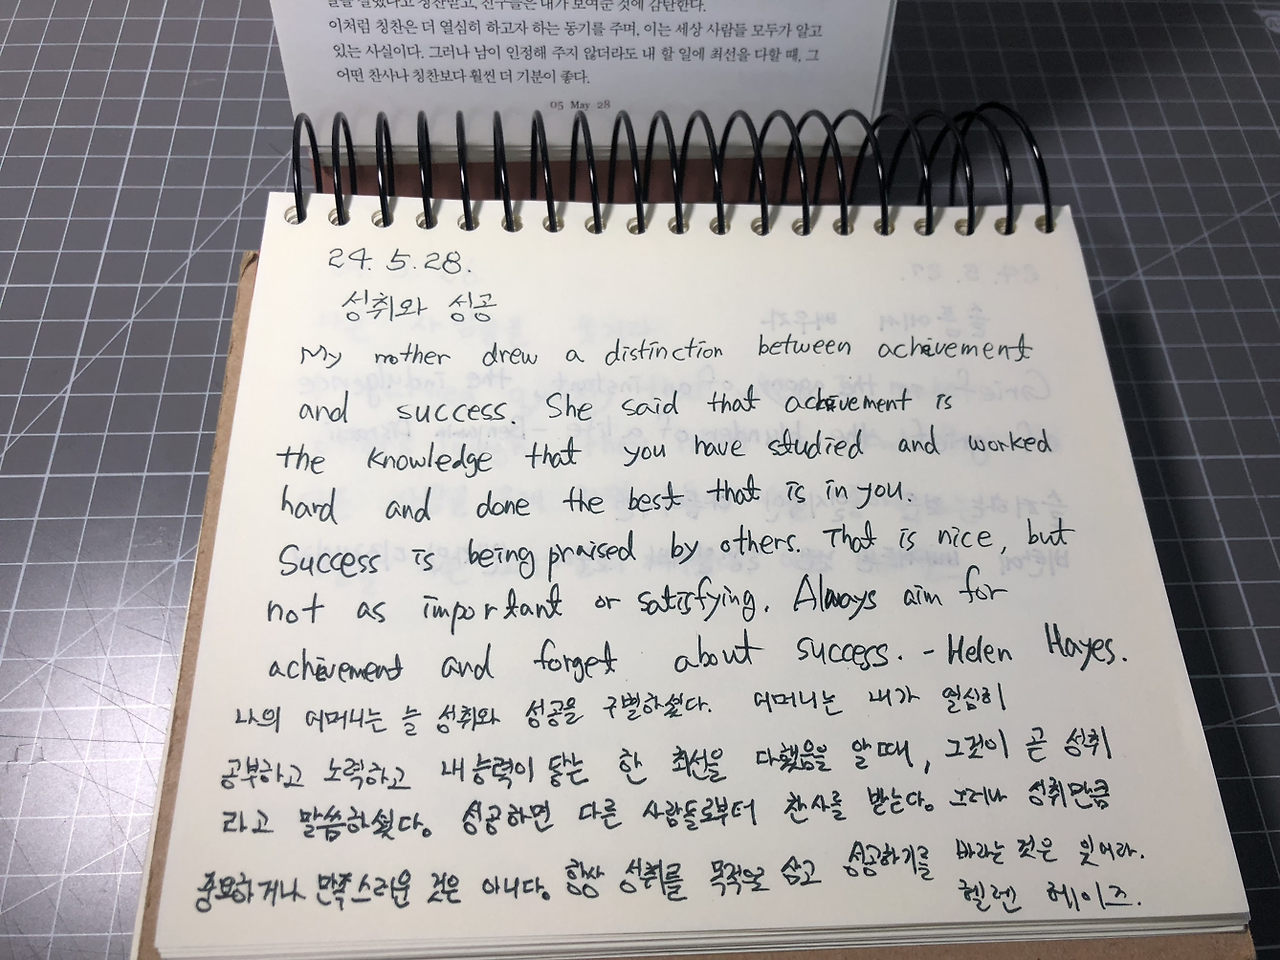 말을 잘했다고 칭찬받고, 친구들은 내가 보여준 것에 감탄한다.
이처럼 칭찬은 더 열심히 하고자 하는 동기를 주며, 이는 세상 사람들 모두가 알고
있는 사실이다. 그러나 남이 인정해 주지 않더라도 내 할 일에 최선을 다할 때, 그
어떤 찬사나 칭찬보다 훨씬 더 기분이 좋다.
05 May 28
24. 5. 28.
성취와 성공
My mother drew a distinction between achievement
and success. She said that achievement is
the knowledge that you have studied and worked
hard and done the best that is in you.
Success is being praised by others. That is nice, but
not as important or satisfying. Always aim for
achievement and forget about success. - Helen Hayes.
나의 어머니는 늘 성취와 성공을 구별하셨다. 어머니는 내가 열심히
공부하고 노력하고 내 능력이 닿는 한 최선을 다했음을 알 때, 그것이 곧 성취
라고 말씀하셨다. 성공하면 다른 사람들로부터 찬사를 받는다. 그러나 성취만큼
중요하거나 만족스러운 것은 아니다. 항상 성취를 목적으로 삼고 성공하기를 바라는 것은 잊어라.
헬렌 헤이즈.